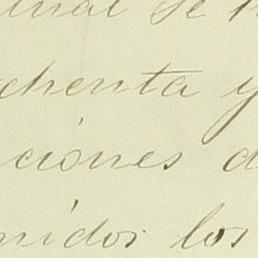 inal de
chenta y
ciones d
nidos los